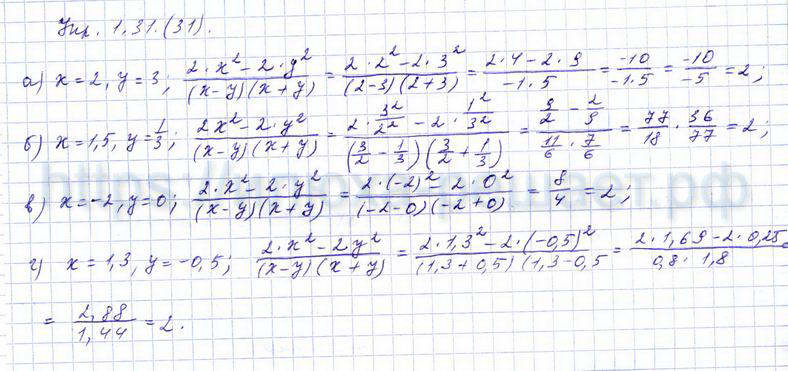 Упр. 1.31.(31).
а) x = 2, y = 3; (2·x² − 2·y²)/((x−y)(x+y)) = (2·2² − 2·3²)/((2−3)(2+3)) = (2·4 − 2·9)/(−1·5) = −10/(−1·5) = −10/−5 = 2;
б) x = 1,5, y = 1/3; (2x² − 2·y²)/((x−y)(x+y)) = (2·3²/2² − 2·1²/3²)/((3/2 − 1/3)(3/2 + 1/3)) = (9/2 − 2/9)/(11/6 · 7/6) = 77/18 · 36/77 = 2;
в) x = −2, y = 0; (2·x² − 2·y²)/((x−y)(x+y)) = (2·(−2)² − 2·0²)/((−2−0)(−2+0)) = 8/4 = 2;
г) x = 1,3, y = −0,5; (2·x² − 2y²)/((x−y)(x+y)) = (2·1,3² − 2·(−0,5)²)/((1,3+0,5)(1,3−0,5 = (2·1,69 − 2·0,25)/(0,8·1,8)
= 2,88/1,44 = 2.